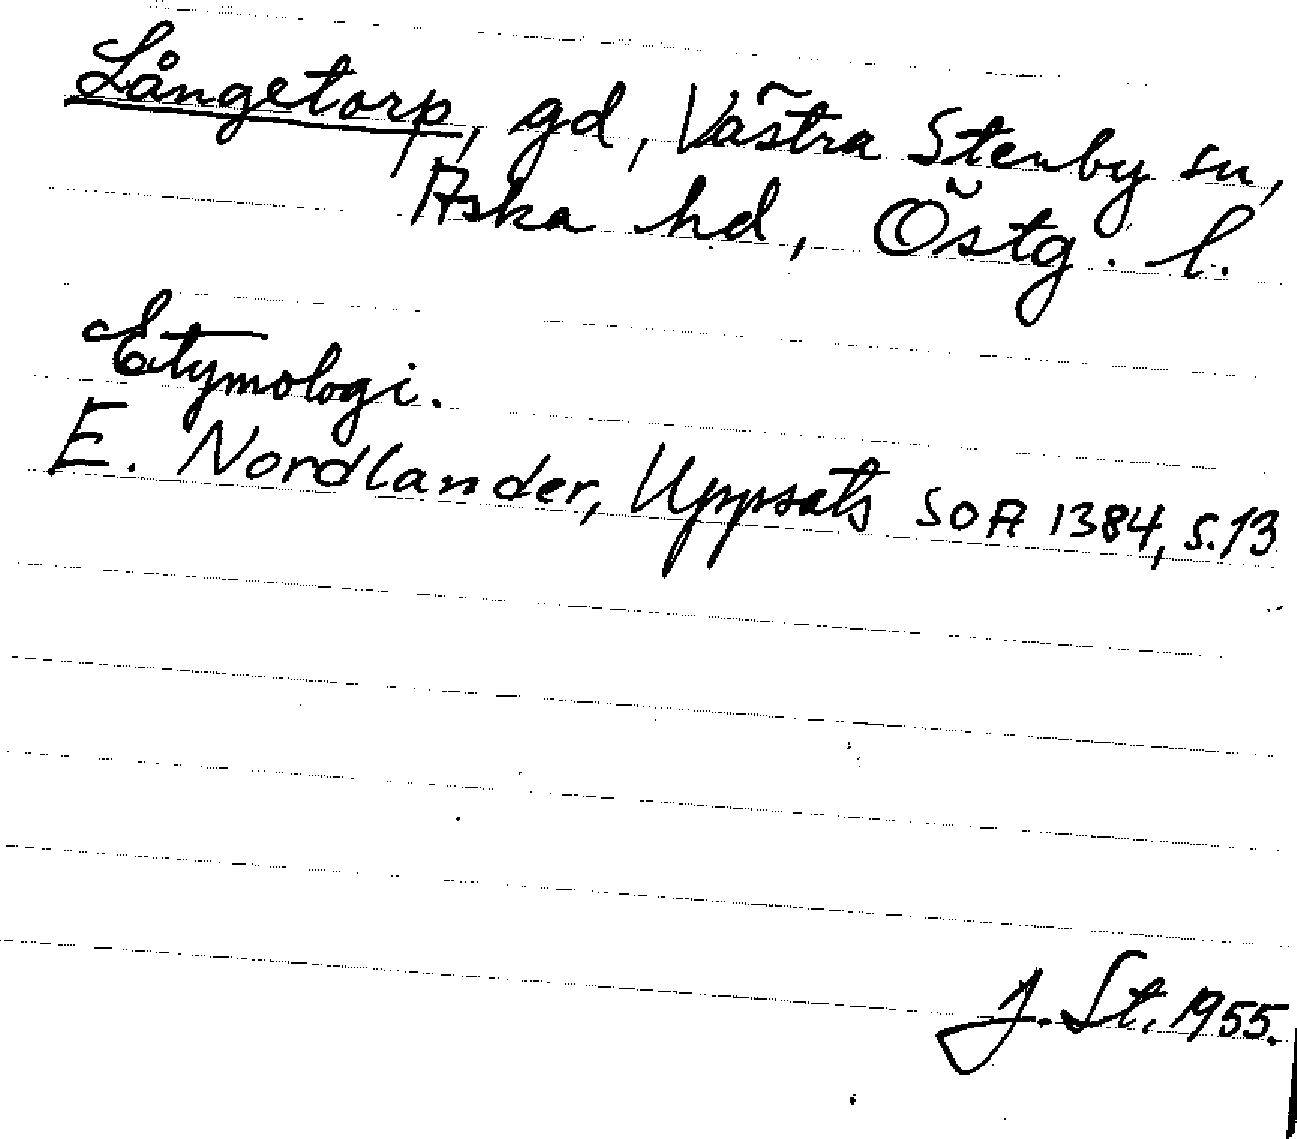 Långetorp, gd, Västra Stenby sn,
Aska hd, Östg. l.
Etymologi.
E. Nordlander, Uppsats SOA 1384, s.13
J. St. 1955.